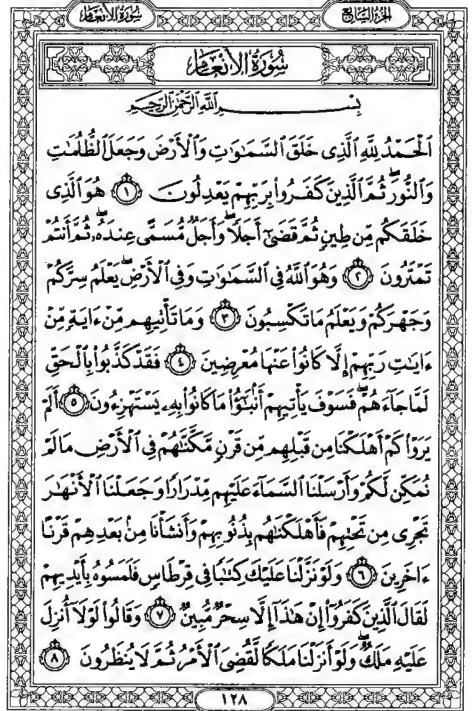 سُورَةُ الأَنْعَامِ
الجُزْءُ السَّابِعُ
سُورَةُ الأَنْعَامِ
بِسْمِ اللَّهِ الرَّحْمَٰنِ الرَّحِيمِ
ٱلْحَمْدُ لِلَّهِ ٱلَّذِى خَلَقَ ٱلسَّمَٰوَٰتِ وَٱلْأَرْضَ وَجَعَلَ ٱلظُّلُمَٰتِ
وَٱلنُّورَ ۖ ثُمَّ ٱلَّذِينَ كَفَرُوا۟ بِرَبِّهِمْ يَعْدِلُونَ ١ هُوَ ٱلَّذِى
خَلَقَكُم مِّن طِينٍ ثُمَّ قَضَىٰٓ أَجَلًا ۖ وَأَجَلٌ مُّسَمًّى عِندَهُۥ ۖ ثُمَّ أَنتُمْ
تَمْتَرُونَ ٢ وَهُوَ ٱللَّهُ فِى ٱلسَّمَٰوَٰتِ وَفِى ٱلْأَرْضِ ۖ يَعْلَمُ سِرَّكُمْ
وَجَهْرَكُمْ وَيَعْلَمُ مَا تَكْسِبُونَ ٣ وَمَا تَأْتِيهِم مِّنْ ءَايَةٍ مِّنْ
ءَايَٰتِ رَبِّهِمْ إِلَّا كَانُوا۟ عَنْهَا مُعْرِضِينَ ٤ فَقَدْ كَذَّبُوا۟ بِٱلْحَقِّ
لَمَّا جَآءَهُمْ ۖ فَسَوْفَ يَأْتِيهِمْ أَنۢبَٰٓؤُا۟ مَا كَانُوا۟ بِهِۦ يَسْتَهْزِءُونَ ٥ أَلَمْ
يَرَوْا۟ كَمْ أَهْلَكْنَا مِن قَبْلِهِم مِّن قَرْنٍ مَّكَّنَّٰهُمْ فِى ٱلْأَرْضِ مَا لَمْ
نُمَكِّن لَّكُمْ وَأَرْسَلْنَا ٱلسَّمَآءَ عَلَيْهِم مِّدْرَارًا وَجَعَلْنَا ٱلْأَنْهَٰرَ
تَجْرِى مِن تَحْتِهِمْ فَأَهْلَكْنَٰهُم بِذُنُوبِهِمْ وَأَنشَأْنَا مِنۢ بَعْدِهِمْ قَرْنًا
ءَاخَرِينَ ٦ وَلَوْ نَزَّلْنَا عَلَيْكَ كِتَٰبًا فِى قِرْطَاسٍ فَلَمَسُوهُ بِأَيْدِيهِمْ
لَقَالَ ٱلَّذِينَ كَفَرُوٓا۟ إِنْ هَٰذَآ إِلَّا سِحْرٌ مُّبِينٌ ٧ وَقَالُوا۟ لَوْلَآ أُنزِلَ
عَلَيْهِ مَلَكٌ ۖ وَلَوْ أَنزَلْنَا مَلَكًا لَّقُضِىَ ٱلْأَمْرُ ثُمَّ لَا يُنظَرُونَ ٨
١٢٨